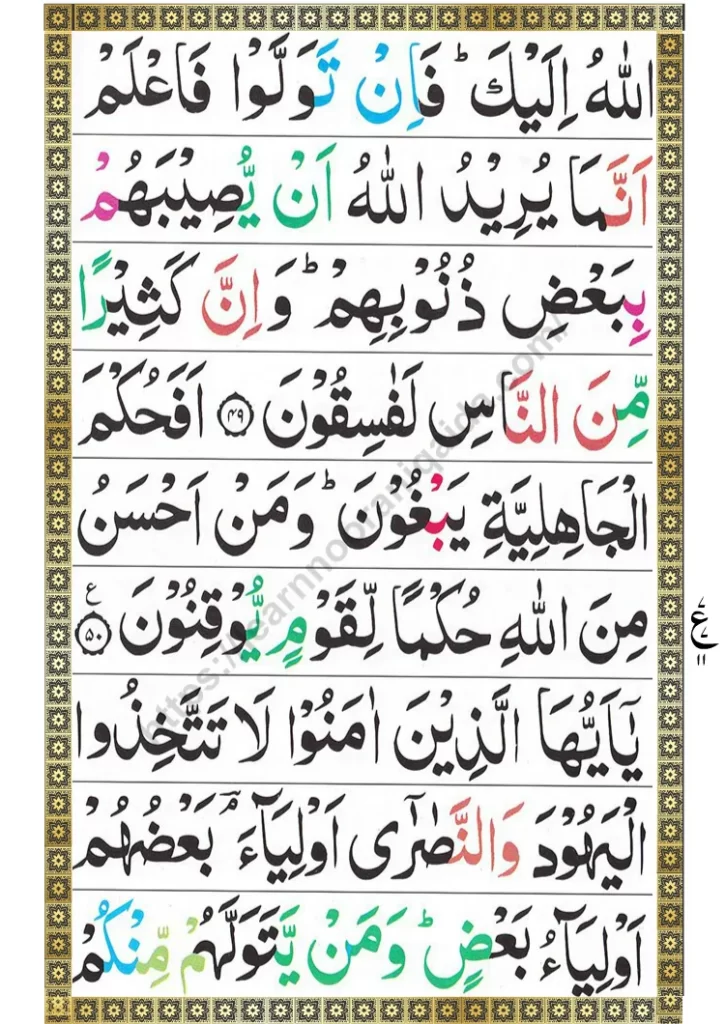 اللّٰهُ اِلَيْكَ ؕ فَاِنْ تَوَلَّوْا فَاعْلَمْ
اَنَّمَا يُرِيْدُ اللّٰهُ اَنْ يُّصِيْبَهُمْ
بِبَعْضِ ذُنُوْبِهِمْ ؕ وَاِنَّ كَثِيْرًا
مِّنَ النَّاسِ لَفٰسِقُوْنَ ﴿۴۹﴾ اَفَحُكْمَ
الْجَاهِلِيَّةِ يَبْغُوْنَ ؕ وَمَنْ اَحْسَنُ
مِنَ اللّٰهِ حُكْمًا لِّقَوْمٍ يُّوْقِنُوْنَ ﴿۵۰﴾ ع
ع ۷ ۱۱
يٰۤاَيُّهَا الَّذِيْنَ اٰمَنُوْا لَا تَتَّخِذُوا
الْيَهُوْدَ وَالنَّصٰرٰۤى اَوْلِيَآءَ ؔۘ بَعْضُهُمْ
اَوْلِيَآءُ بَعْضٍ ؕ وَمَنْ يَّتَوَلَّهُمْ مِّنْكُمْ
https://learnnooraniqaida.com/